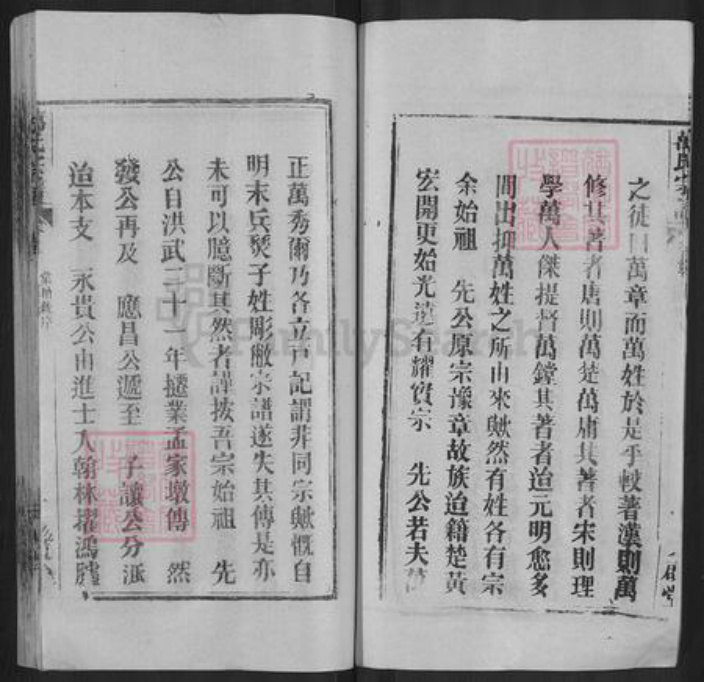 之徒曰萬章而萬姓於是乎較著漢則萬
修其著者唐則萬楚萬庸其著者宋則理
學萬人傑提督萬鏜其著者迨元明愈多
間出抑萬姓之所由來歟然有姓各有宗
余始祖 先公原宗豫章故族迨籍楚黃
宏開更始光遠有耀實宗 先公若夫
正萬秀爾乃各立戸記謂非同宗歟慨自
明末兵燹子姓彫敝宗譜遂失其傳是亦
未可以臆斷其然者謹按吾宗始祖 先
公自洪武二十一年擾業孟家墩傳 然
發公再及 應昌公遞至 子讓公分派
迨本支 永貴公由進士入翰林擢鴻臚
FamilySearch